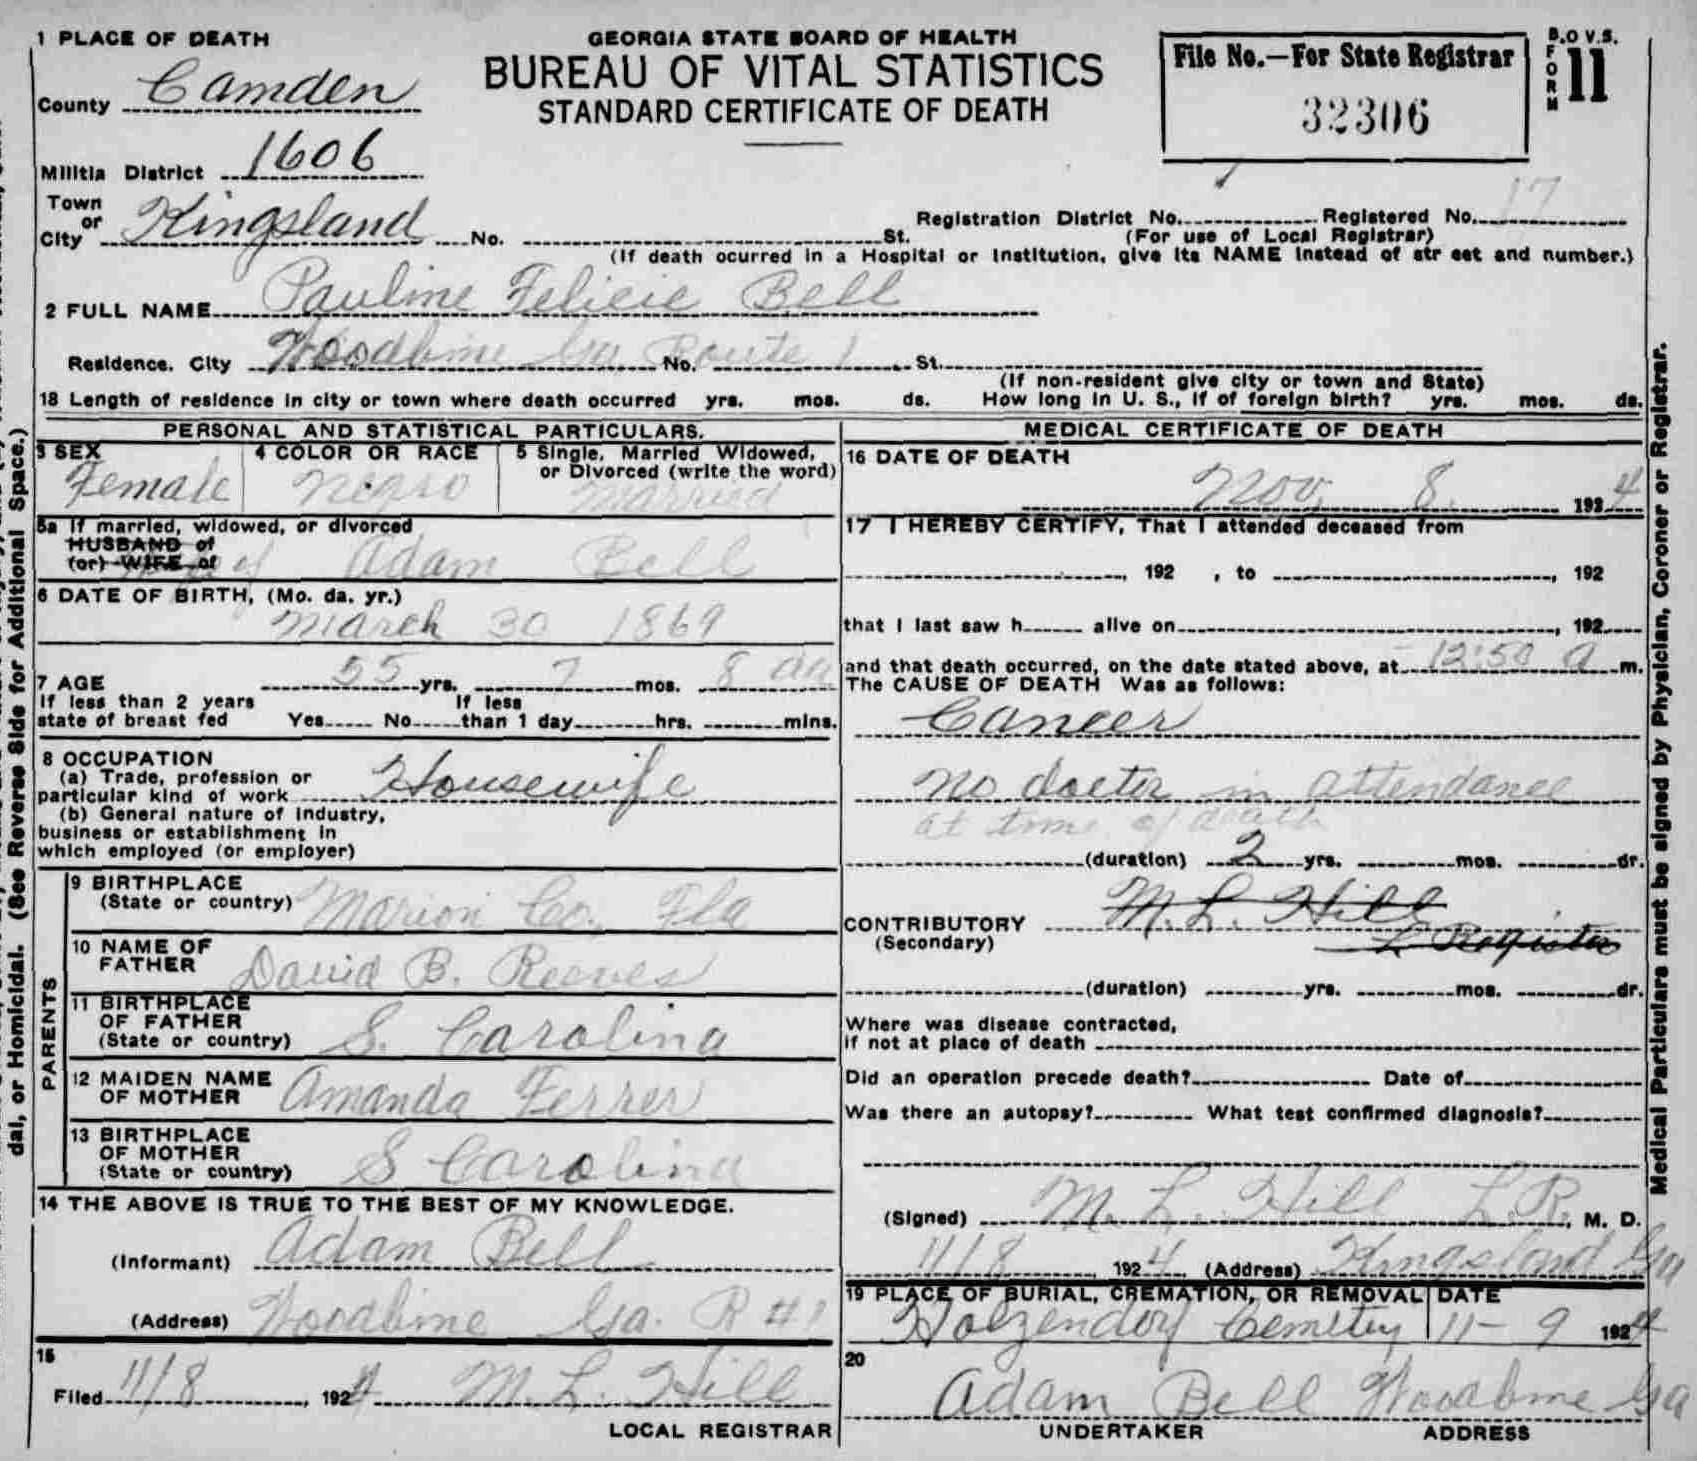 1 PLACE OF DEATH
County Camden
GEORGIA STATE BOARD OF HEALTH
BUREAU OF VITAL STATISTICS
STANDARD CERTIFICATE OF DEATH
File No.—For State Registrar
32306
B.O V.S.
FORM 11
Militia District 1606
Town or City Kingsland No. St.
Registration District No. Registered No. 17
(For use of Local Registrar)
(If death ocurred in a Hospital or Institution, give its NAME instead of str eet and number.)
2 FULL NAME Pauline Felicie Bell
Residence. City Woodbine Ga No. Route 1 St.
(If non-resident give city or town and State)
18 Length of residence in city or town where death occurred yrs. mos. ds. How long in U. S., if of foreign birth? yrs. mos. ds.
PERSONAL AND STATISTICAL PARTICULARS.
3 SEX
Female
4 COLOR OR RACE
Negro
5 Single, Married Widowed,
or Divorced (write the word)
Married
5a If married, widowed, or divorced
HUSBAND of
(or) WIFE of
of Adam Bell
6 DATE OF BIRTH, (Mo. da. yr.)
March 30 1869
7 AGE 55 yrs. 7 mos. 8 da
If less than 2 years
state of breast fed Yes No
If less
than 1 day hrs. mins.
8 OCCUPATION
(a) Trade, profession or
particular kind of work Housewife
(b) General nature of Industry,
business or establishment in
which employed (or employer)
PARENTS
9 BIRTHPLACE
(State or country) Marion Co. Fla
10 NAME OF
FATHER David B. Reeves
11 BIRTHPLACE
OF FATHER
(State or country) S. Carolina
12 MAIDEN NAME
OF MOTHER Amanda Ferrer
13 BIRTHPLACE
OF MOTHER
(State or country) S Carolina
14 THE ABOVE IS TRUE TO THE BEST OF MY KNOWLEDGE.
(Informant) Adam Bell
(Address) Woodbine Ga. R #1
15
Filed 11/8, 1924 M. L. Hill
LOCAL REGISTRAR
MEDICAL CERTIFICATE OF DEATH
16 DATE OF DEATH
Nov. 8. 1924
17 I HEREBY CERTIFY, That I attended deceased from
, 192 , to , 192
that I last saw h alive on , 192
and that death occurred, on the date stated above, at 12:50 a m.
The CAUSE OF DEATH Was as follows:
Cancer
No doctor in attendance
at time of death
(duration) 2 yrs. mos. dr.
CONTRIBUTORY M. L. Hill
(Secondary) L Register
(duration) yrs. mos. dr.
Where was disease contracted,
if not at place of death
Did an operation precede death? Date of
Was there an autopsy? What test confirmed diagnosis?
(Signed) M. L. Hill L.R., M. D.
11/8, 1924 (Address) Kingsland Ga
19 PLACE OF BURIAL, CREMATION, OR REMOVAL
Holzendorf Cemetery
DATE
11-9 1924
20
Adam Bell Woodbine Ga
UNDERTAKER ADDRESS
dal, or Homicidal. (See Reverse Side for Additional Space.)
Medical Particulars must be signed by Physician, Coroner or Registrar.